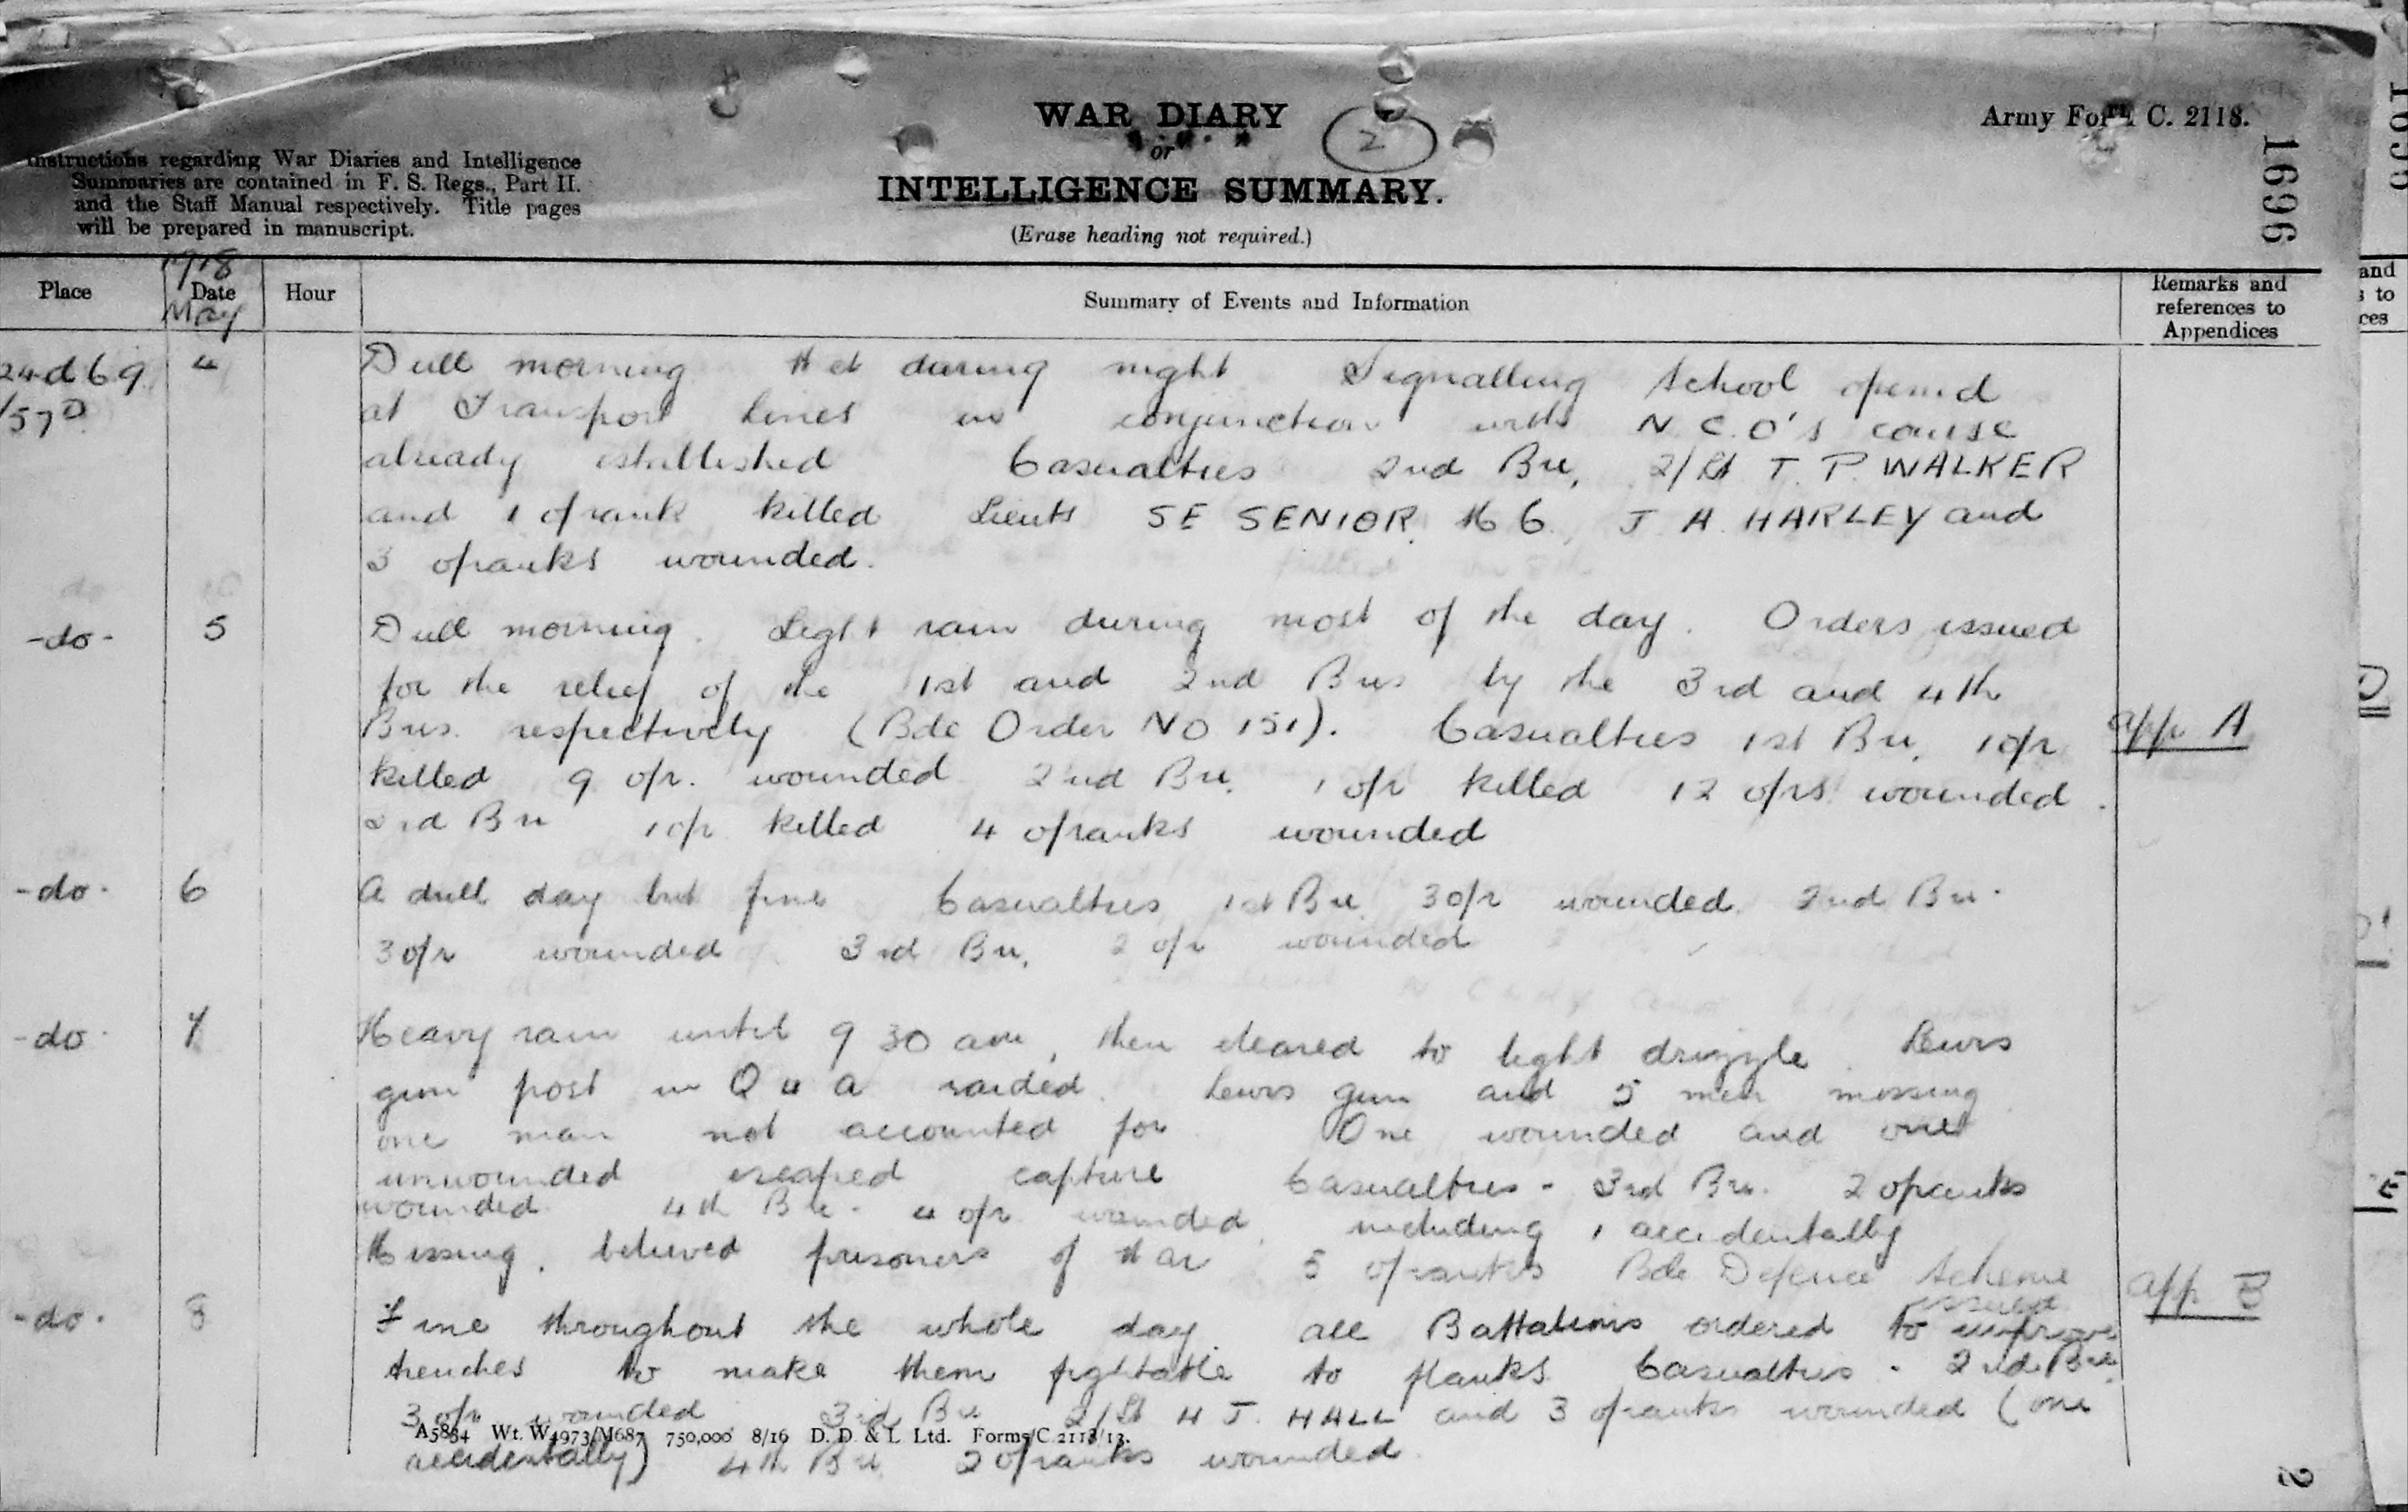 WAR DIARY
or
INTELLIGENCE SUMMARY.
(Erase heading not required.)
2
Army Form C. 2118.
1696
Instructions regarding War Diaries and Intelligence
Summaries are contained in F. S. Regs., Part II.
and the Staff Manual respectively. Title pages
will be prepared in manuscript.
Place
1918
Date
May
Hour
Summary of Events and Information
Remarks and
references to
Appendices
24d 6 9 4 Dull morning Wet during night Signalling School opened
/57D at Transport Lines in conjunction with N C.O's course
already established Casualties 2nd Bn, 2/Lt T. P. WALKER
and 1 o/rank killed Lieuts SE SENIOR J. A. HARLEY and
3 o/ranks wounded.
-do- 5 Dull morning. Light rain during most of the day. Orders issued
for the relief of the 1st and 2nd Bns by the 3rd and 4th
Bns. respectively (Bde Order NO 151). Casualties 1st Bn, 1 o/r app A
killed 9 o/r. wounded 2nd Bn. 1 o/r killed 12 o/rs wounded.
3rd Bn 1 o/r killed 4 o/ranks wounded
-do- 6 A dull day but fine Casualties 1st Bn 3 o/r wounded. 2nd Bn.
3 o/r wounded 3rd Bn, 2 o/r wounded
-do- 7 Heavy rain until 9 30 am, then cleared to light drizzle Lewis
gun post in Q 4 a raided. Lewis gun and 5 men missing
one man not accounted for One wounded and one
unwounded escaped capture Casualties - 3rd Bn. 2 o/ranks
wounded. 4th Bn - 4 o/r wounded, including 1 accidentally
Missing, believed prisoners of War 5 o/ranks Bde Defence Scheme app B
issued
-do- 8 Fine throughout the whole day. All Battalions ordered to improve
trenches to make them fightable to flanks. Casualties - 2nd Bn.
3 o/r wounded 3rd Bn 2/Lt H J. HALL and 3 o/ranks wounded (one
A5834 Wt. W4973/M687 750,000 8/16 D. D. & L. Ltd. Forms/C.2118/13.
accidentally) 4th Bn 2 o/ranks wounded.
2